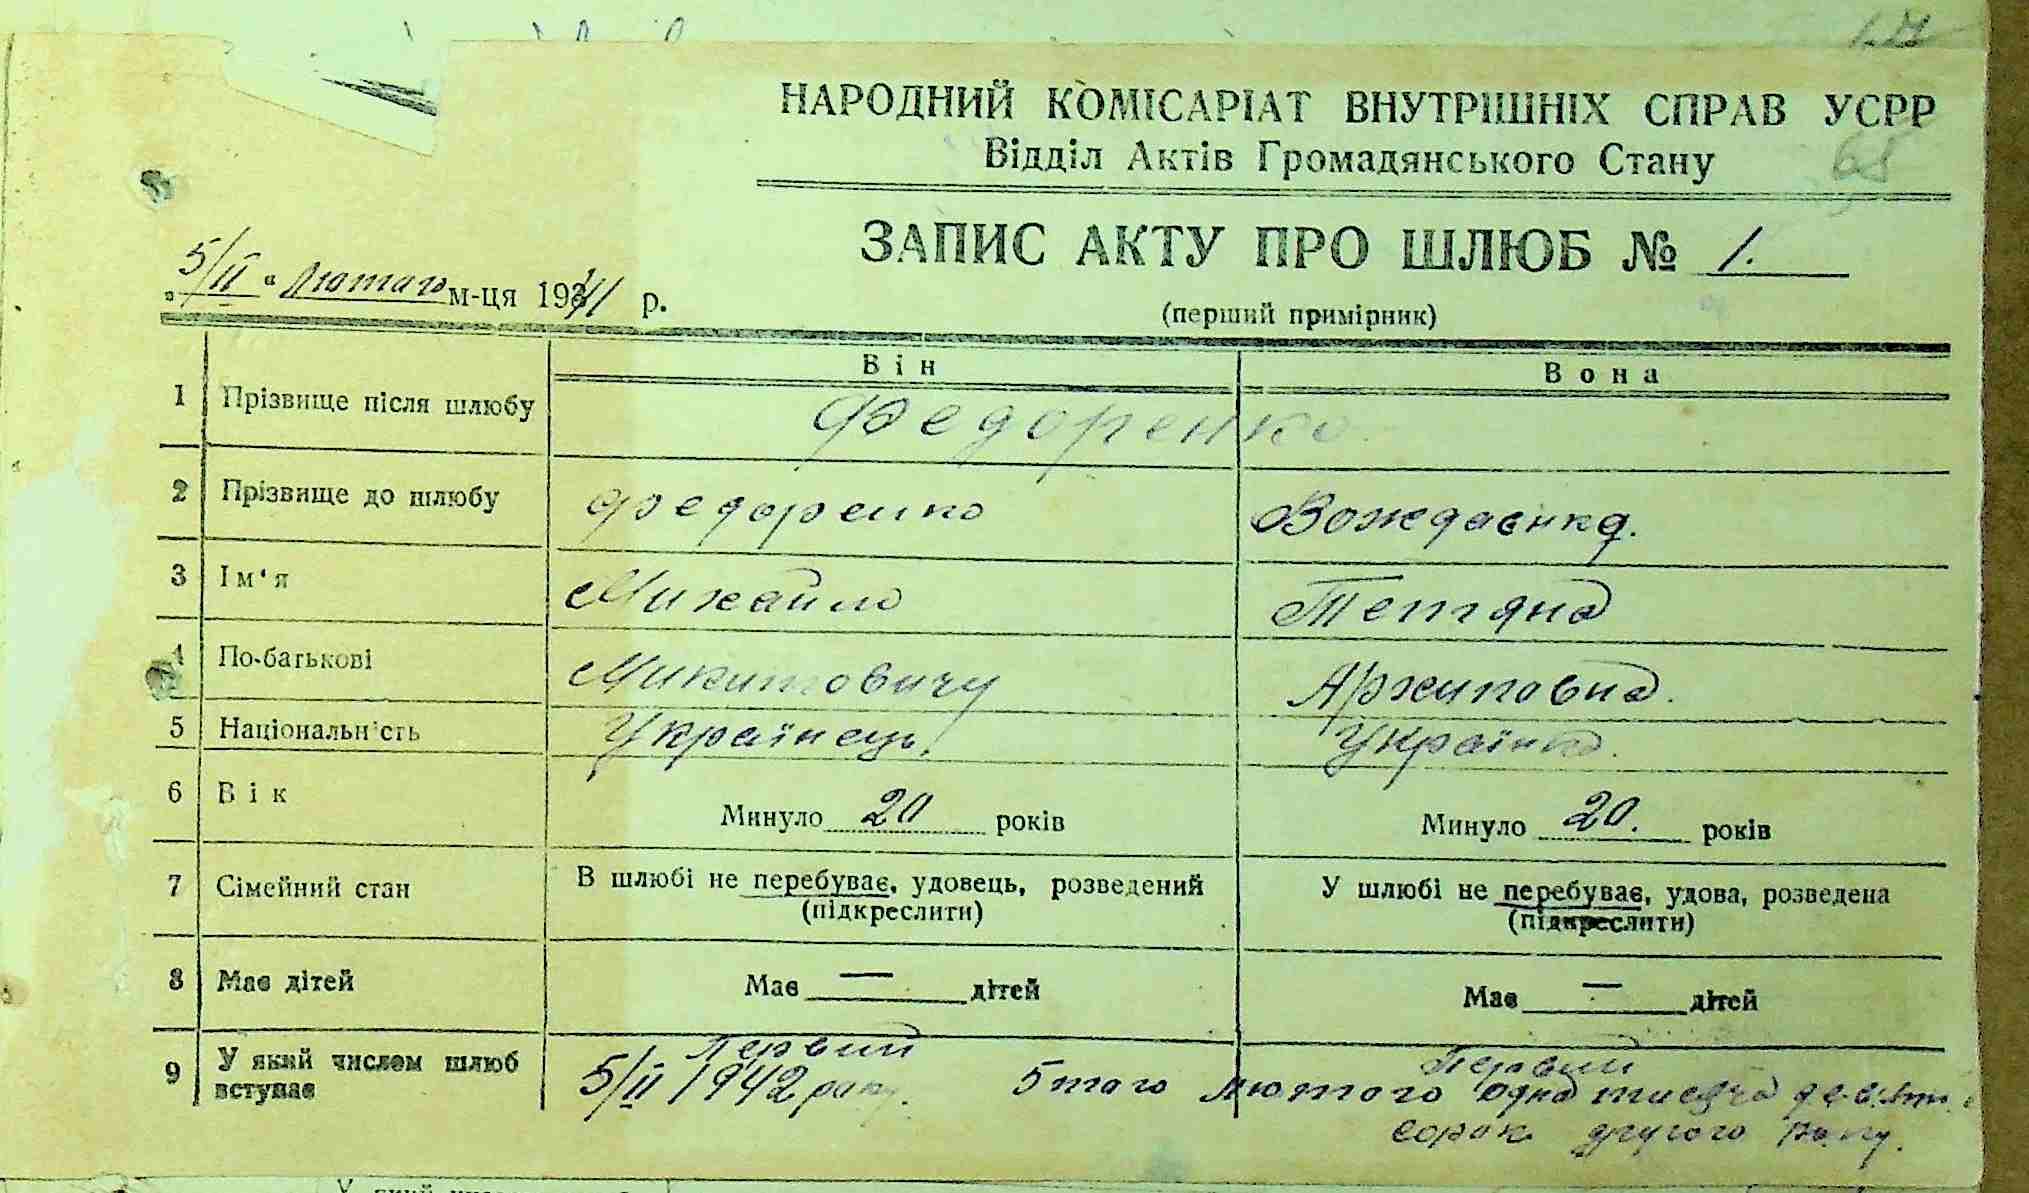 НАРОДНИЙ КОМІСАРІАТ ВНУТРІШНІХ СПРАВ УСРР
Відділ Актів Громадянського Стану
65
ЗАПИС АКТУ ПРО ШЛЮБ № 1.
(перший примірник)
„5/II“ Лютого м-ця 1941 р.
Він Вона
1 Прізвище після шлюбу Федоренко
2 Прізвище до шлюбу Федоренко Вождаєнко.
3 Ім'я Михайло Тетяна
4 По-батькові Микитовичу Архиповна.
5 Національність Українець. Українка.
6 Вік Минуло 20 років Минуло 20. років
7 Сімейний стан В шлюбі не перебуває, удовець, розведений У шлюбі не перебуває, удова, розведена
(підкреслити) (підкреслити)
8 Має дітей Має — дітей Має — дітей
9 У який числом шлюб вступає Первий Первий
5/II 1942 року. 5того лютого одна тисяча
сорок другого року.